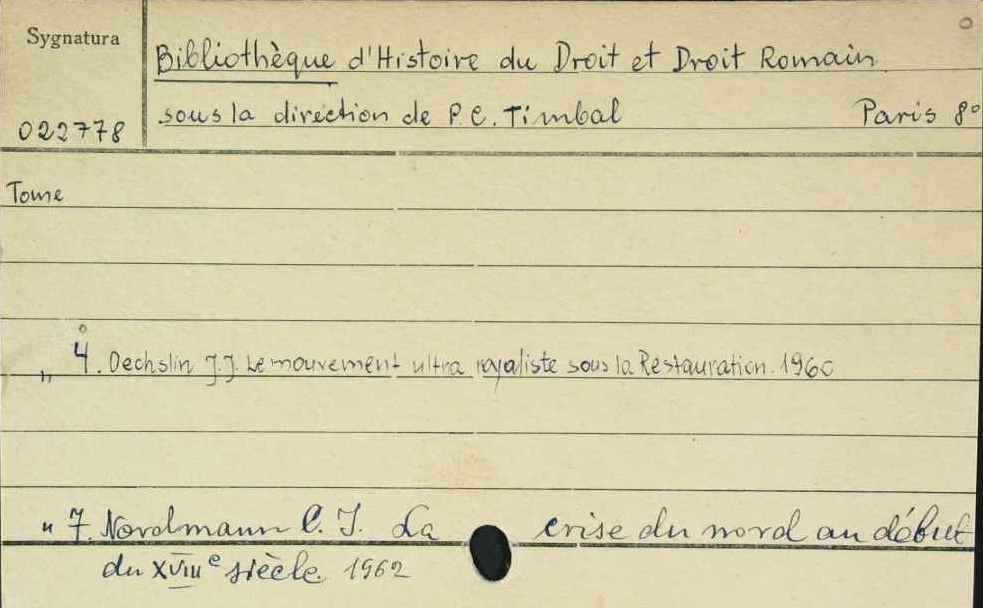 Sygnatura
022778
Bibliothèque d'Histoire du Droit et Droit Romain
sous la direction de P. C. Timbal Paris 8°
Tome
„ 4. Oechslin J.J. Le mouvement ultra royaliste sous la Restauration. 1960
„ 7. Nordmann C. J. La crise du nord au début
du XVIIIe siècle. 1962